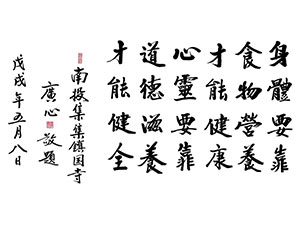 身體要靠
食物營養
才能健康
心靈要靠
道德滋養
才能健全
南投集集鎮國寺
廣心敬題
戊戌年五月八日